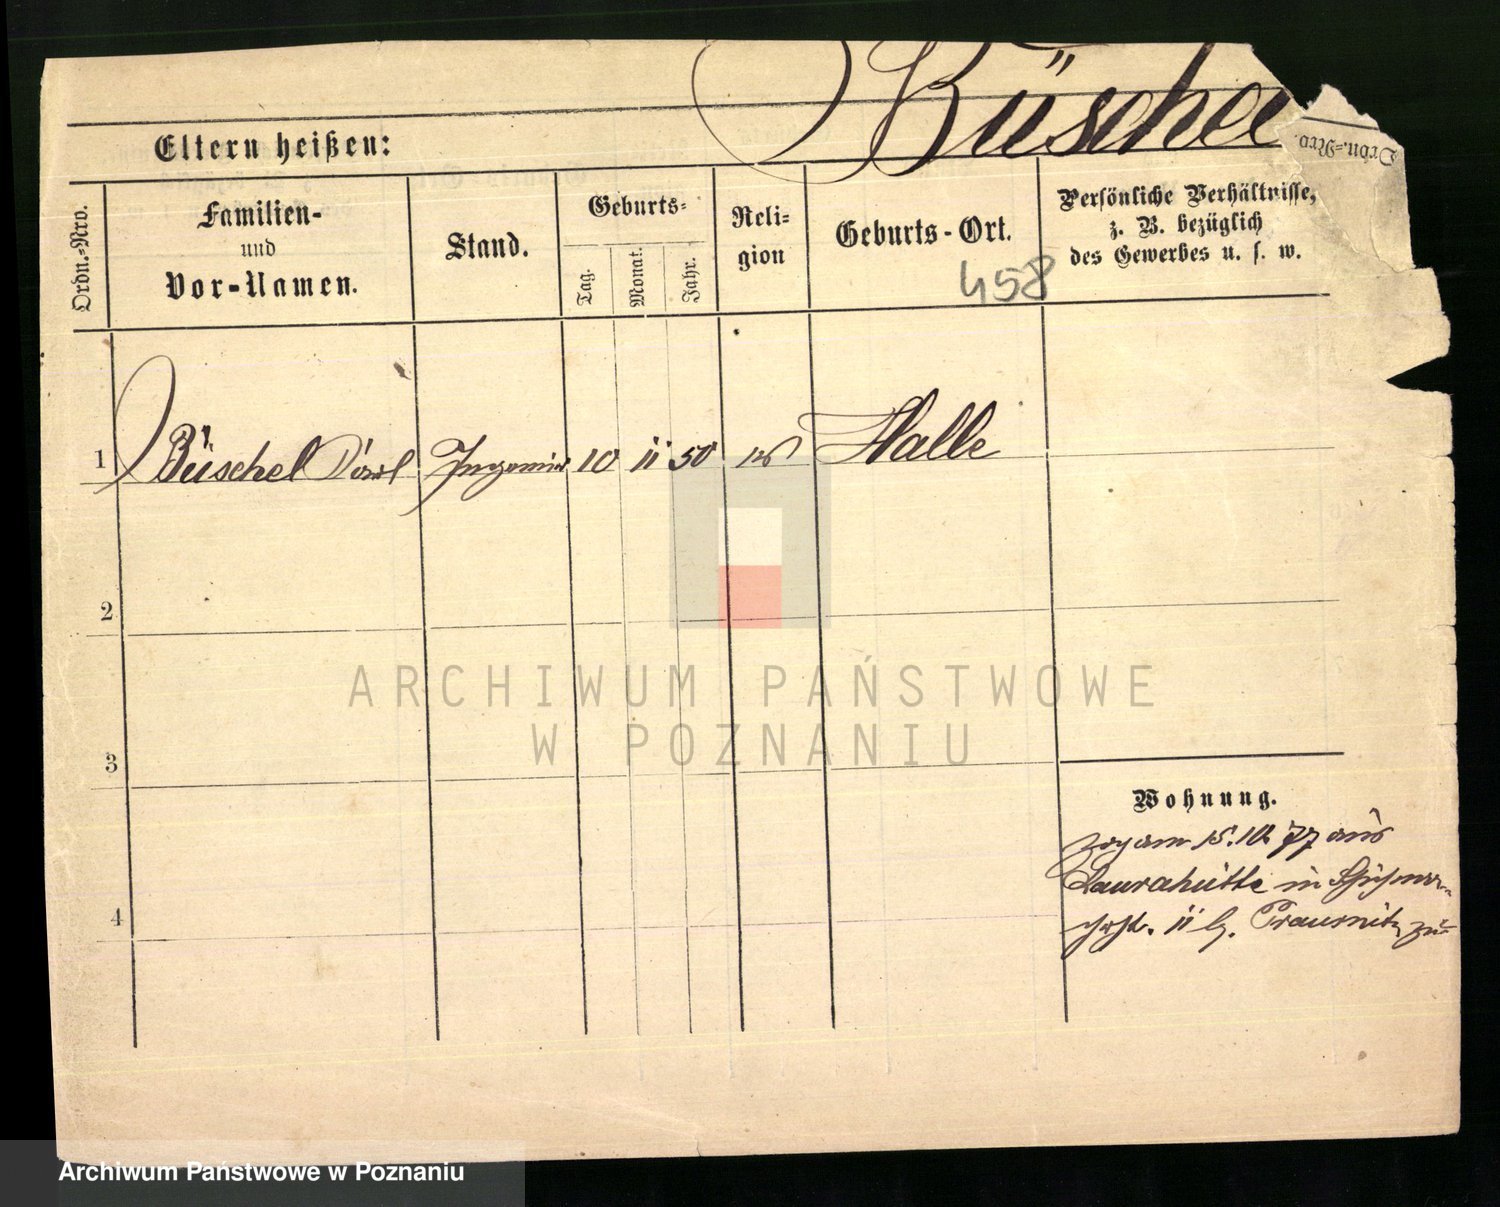 Büschel
Ordn.-Nro.
Eltern heißen:
Ordn.-Nro.
Familien-
und
Vor-Namen.
Stand.
Geburts-
Tag.
Monat.
Jahr.
Reli-
gion
Geburts-Ort.
Persönliche Verhältnisse,
z. B. bezüglich
des Gewerbes u. s. w.
458
1 Büschel 10 11 50 Halle
2
3
4
Wohnung.
zog am 15.10.77 aus
Laurahütte in
11 b. Traumitz zu
ARCHIWUM PAŃSTWOWE
W POZNANIU
Archiwum Państwowe w Poznaniu